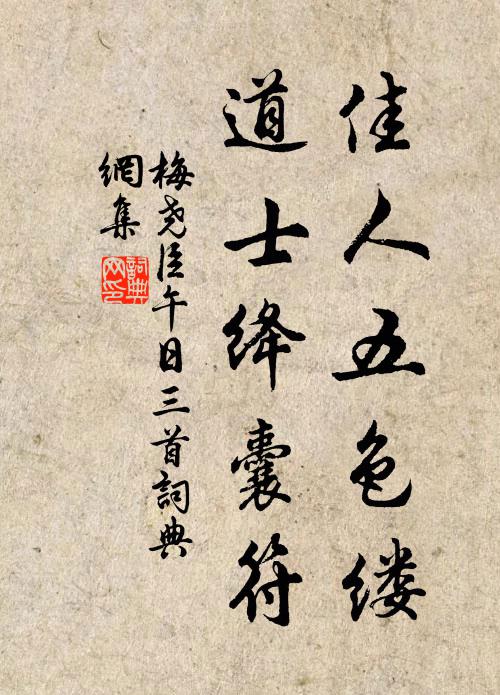 佳人五色缕
道士绛囊符
梅尧臣午日三首詞典
網集
詞典
网印